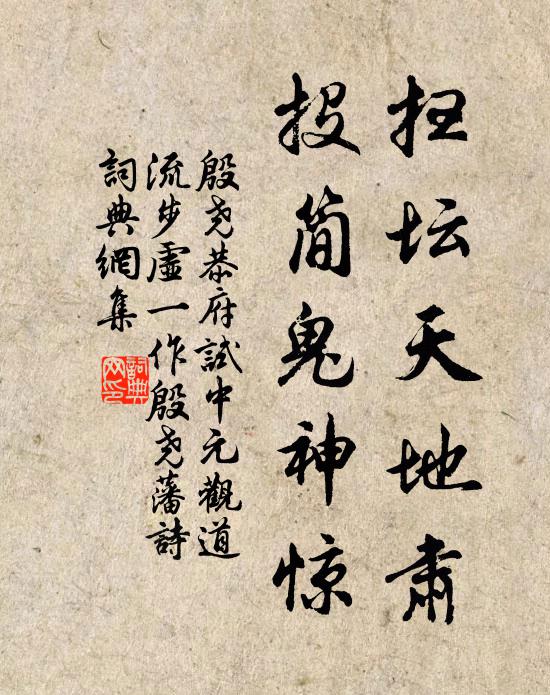 扫坛天地肃
投简鬼神惊
殷尧恭府試中元觀道
流步虛一作殷尧藩詩
詞典網集
詞典网印